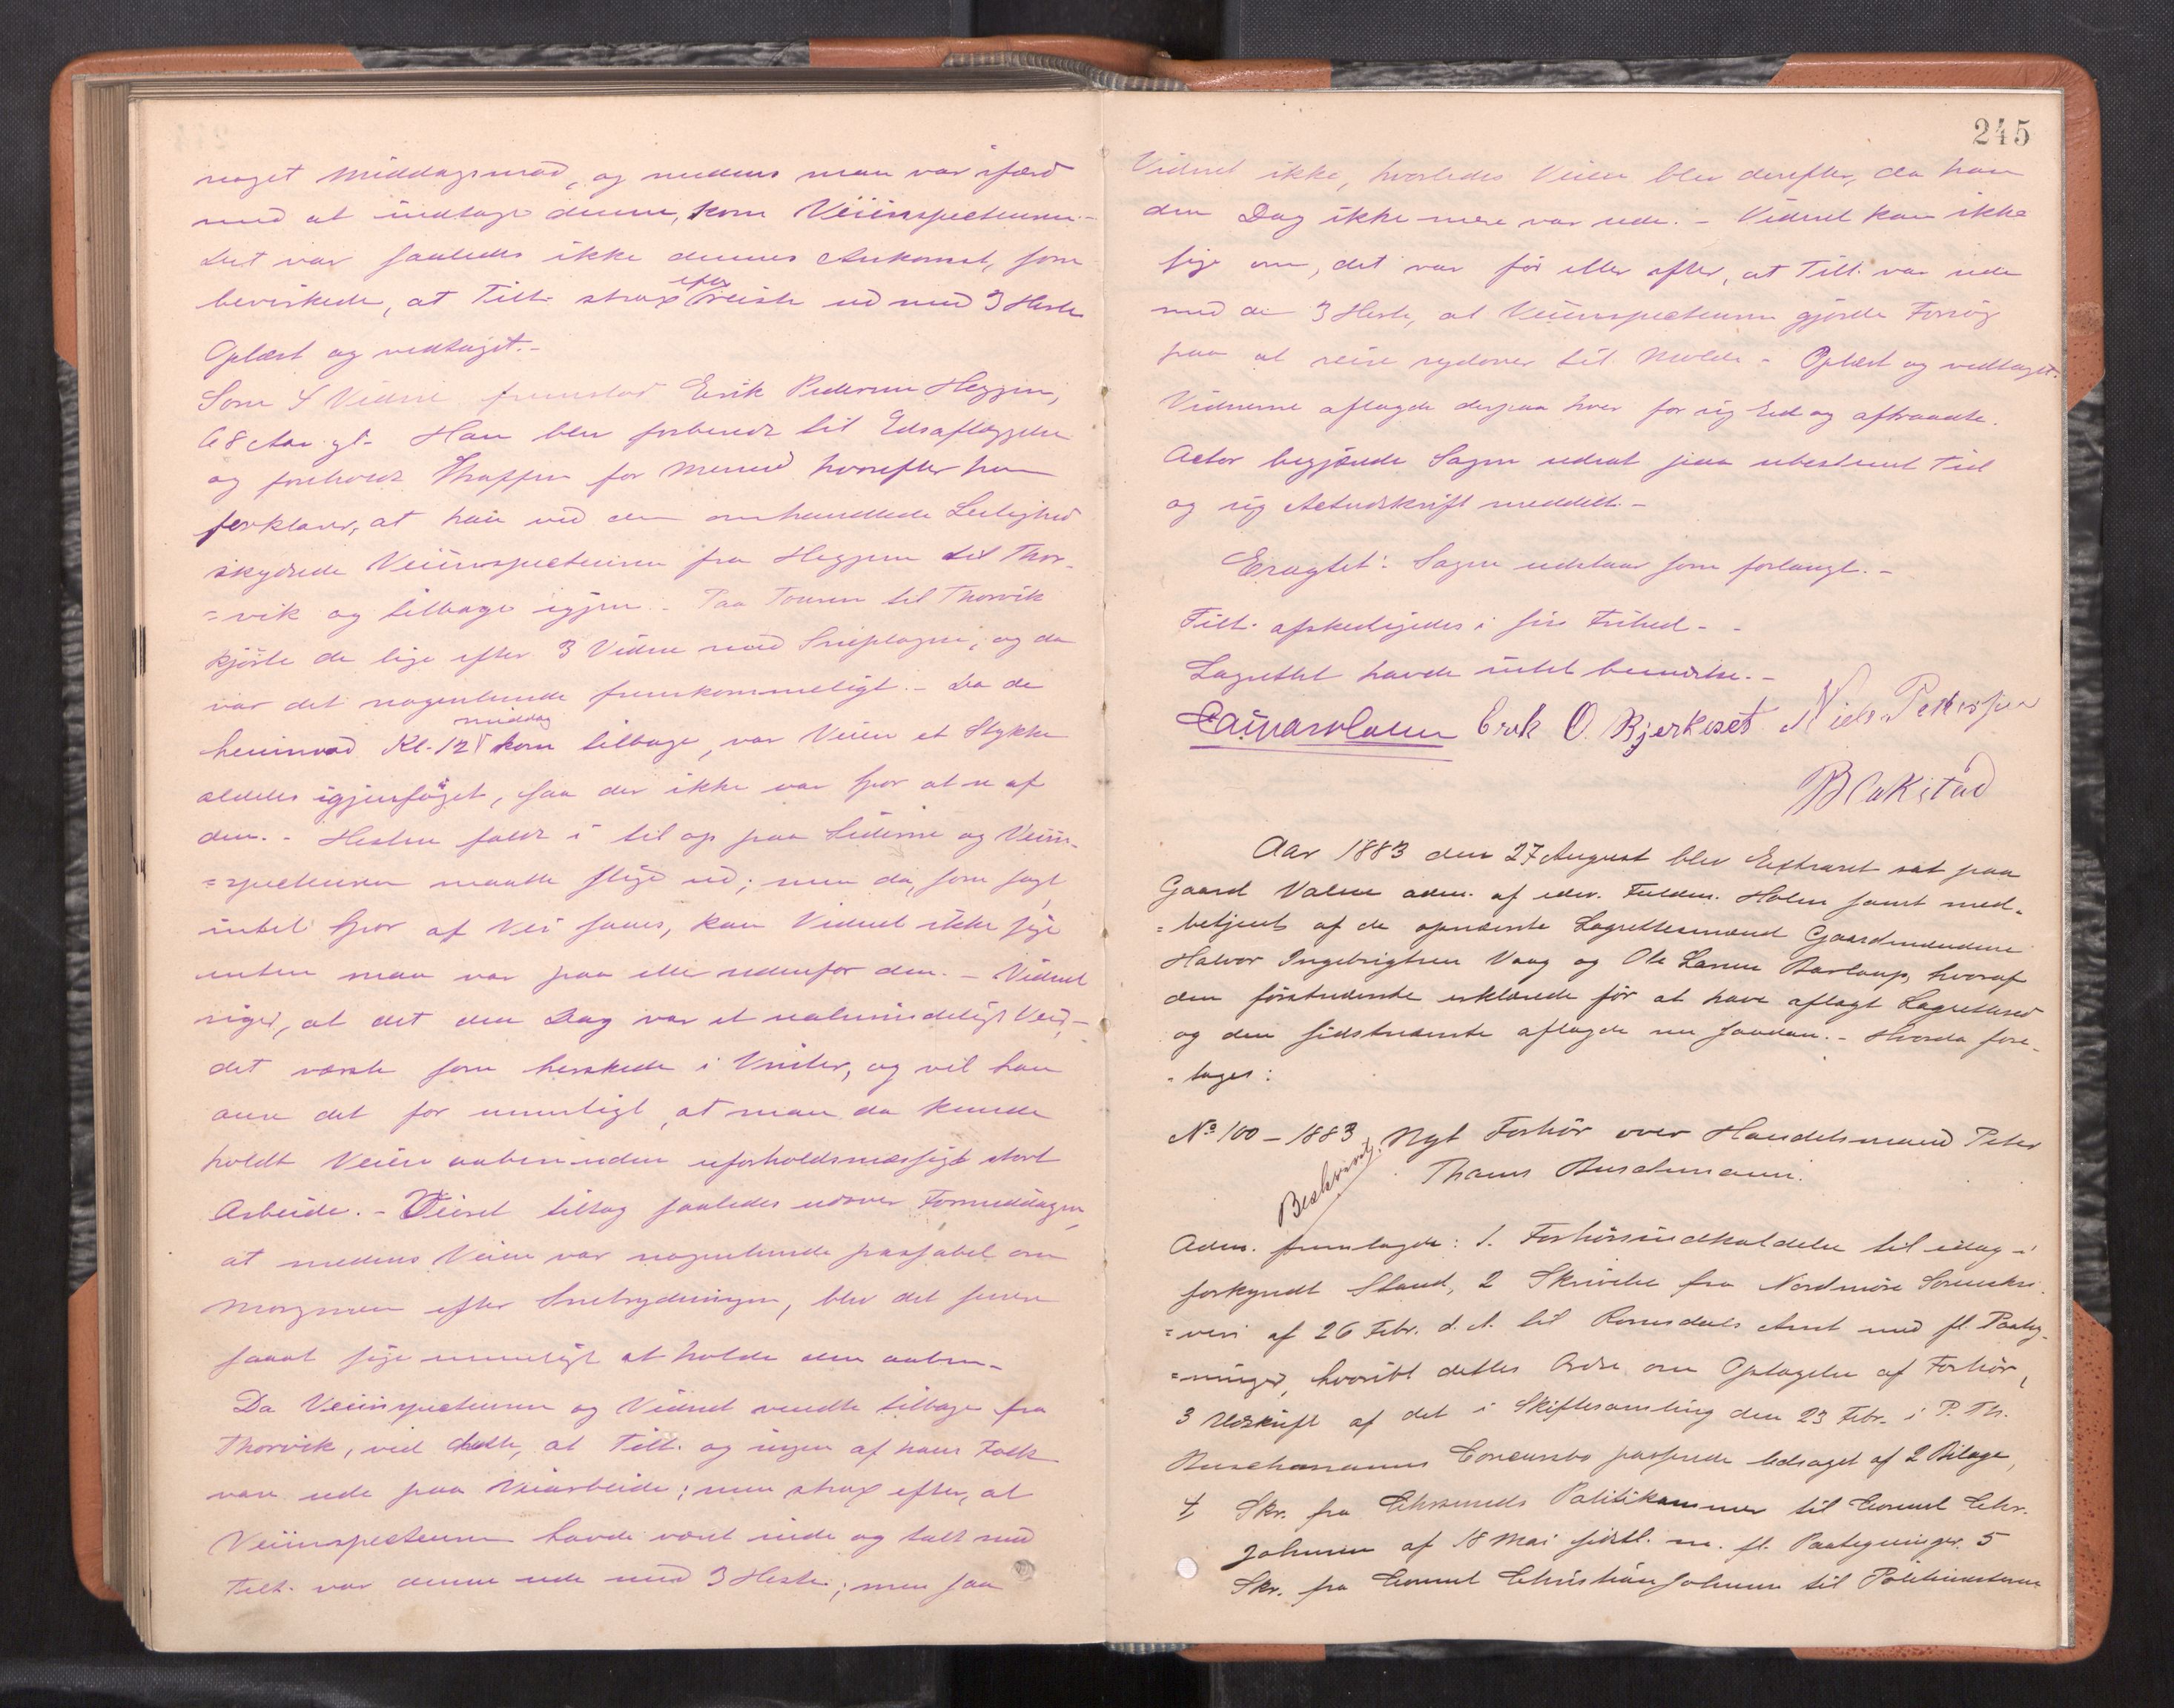 noget Middagsmad, og medens man var ifærd
med at indtage denne, kom Veiinspecteuren.-
Det var saaledes ikke dennes Ankomst, som
bevirkede, at Tilt. strax efter reiste ud med 3 Heste
Oplæst og vedtaget.-
Som 4 Vidne fremstod Erik Pedersen Heggem,
68 Aar gl. Han blev forberedt til Edsaflæggelse
og foreholdt Straffen for Mened hvorefter han
forklarer, at han ved den omhandlede Leilighed
skydsede Veiinspecteuren fra Heggem til Thor-
=vik og tilbage igjen.- Paa Touren til Thorvik
kjørte de lige efter 3 Vidne med Sneplogen, og da
var det nogenlunde fremkommeligt.- Da de
henimod Kl. 12 middag kom tilbage, var Veien et Stykke
aldeles igjenføget, saa der ikke var Spor at se af
den.- Hesten faldt i til op paa Siderne og Veiin-
=specteuren maatte stige ud; men da, som sagt,
intet Spor af Vei saaes, kan Vidnet ikke sige
enten man var paa eller udenfor den.- Vidnet
siger, at det den Dag var et ualmindeligt Veir,-
det værste som herskede i Vinter, og vil han
anse det for umuligt, at man da kunde
holdt Veien aaben uden uforholdsmæssigt stort
Arbeide.- Veiret tiltog saaledes udover Formiddagen,
at medens Veien var nogenlunde passabel om
Morgenen efter Snebrydningen, blev det senere
saaat sige umuligt at holde den aaben.-
Da Veiinspecteuren og Vidnet vendte tilbage fra
Thorvik, ved dette, at Tilt. og ingen af hans Folk
var ude paa Veiarbeide; men strax efter, at
Veiinspecteuren havde været inde og talt med
Tilt. var denne ude med 3 Heste; men saa
245
Vidnet ikke, hvorledes Veien blev derefter, da han
den Dag ikke mere var ude.- Vidnet kan ikke
sige om, det var før eller efter, at Tilt. var ude
med de 3 Heste, at Veiinspecteuren gjorde Forsøg
paa at reise sydover til Molde.- Oplæst og vedtaget.
Vidnerne aflagde derpaa hver for sig Eed og aftraadte.
Actor begjærede Sagen udsat paa ubestemt Tid
og sig Actudskrift meddelt.-
Eragtet: Sagen udstaar som forlangt.-
Tilt. afskedigedes i sin Frihed.-
Lagrettet havde intet bemærke.-
Erik O. Bjerkeset Niels Pedersen
Blakstad
Aar 1883 den 27 August blev Extraret sat paa
Gaard Valen adm. af edsv. Fuldm. Holm samt med-
=betjent af de opnævnte Lagrettesmænd Gaardmændene
Halvor Ingebrigtsen Vaag og Ole Larsen, hvoraf
den førstnævnte erklærede før at have aflagt Lagretteseed
og den sidstnævnte aflagde nu saadan.- Hvorda fore-
-tages:
No 100 - 1883. Nyt Forhør over Handelsmand Peter
Thams Buschmann.
Beskrevet.
Adm. fremlagde: 1. Forhørsindkaldelse til idag i
forkyndt Stand, 2 Skrivelse fra Nordmøre Sorenskri-
=veri af 26 Febr. d. A. til Romsdals Amt med fl. Paateg-
=ninger, hvoriblt dettes Ordre om Optagelse af Forhør,
3 Udskrift af det i Skiftesamling den 23 Febr. i P. Th.
Buschmanns Concursbo passerede ledsaget af 2 Bilage,
4 Skr. fra Chrsunds Politikammer til Consul Chr.
Johnsen af 18 Mai sidstl. m. fl. Paategninger. 5
Skr. fra Consul Christian Johnsen til Politimesteren